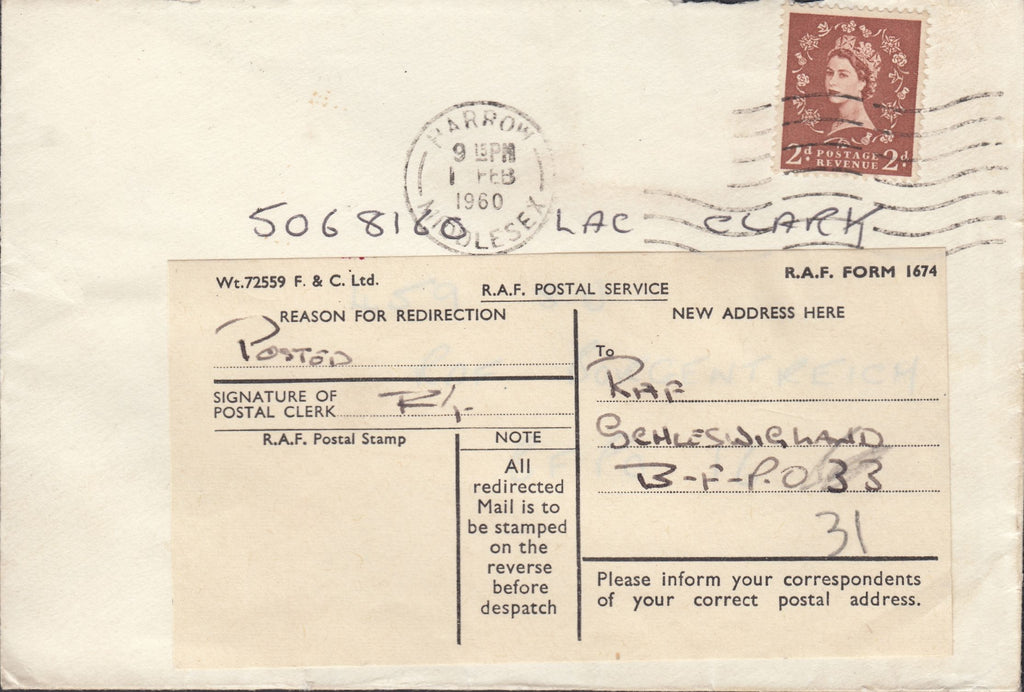 HARROW
9 15PM
1 FEB
1960
MIDDLESEX
2d POSTAGE REVENUE 2d
5068160 LAC CLARK
Wt.72559 F. & C. Ltd.
R.A.F. FORM 1674
R.A.F. POSTAL SERVICE
REASON FOR REDIRECTION
POSTED
SIGNATURE OF
POSTAL CLERK
R.A.F. Postal Stamp
NOTE
All
redirected
Mail is to
be stamped
on the
reverse
before
despatch
NEW ADDRESS HERE
To
RAF
SCHLESWIGLAND
B-F-P.O 33
31
Please inform your correspondents
of your correct postal address.